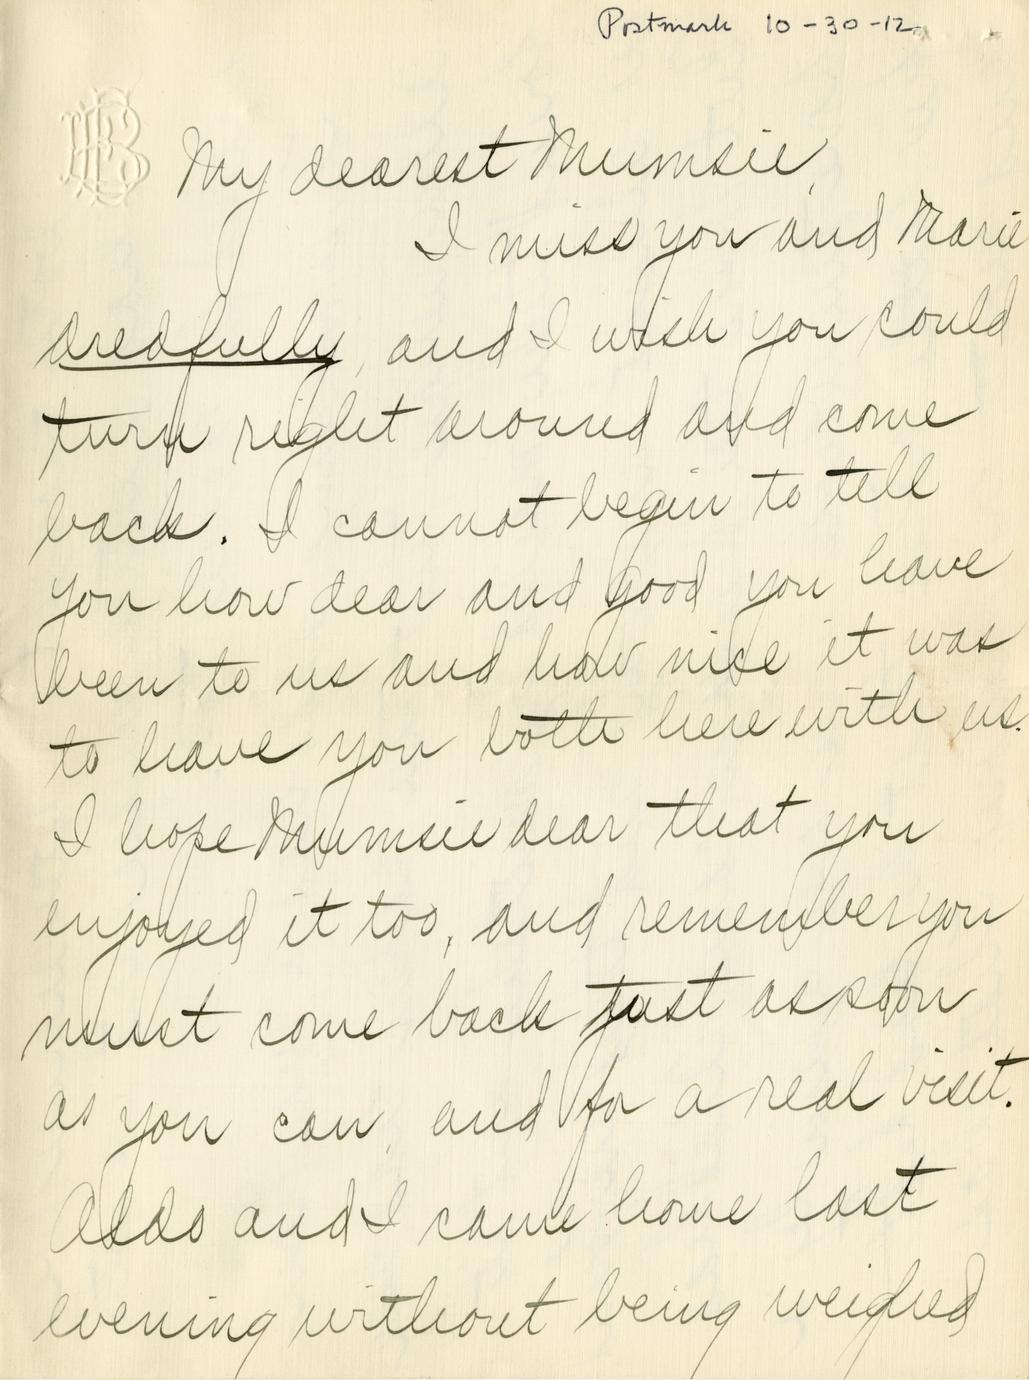 Postmark 10-30-12
My dearest Mumsie,
I miss you and Marie
dredfully, and I wish you could
turn right around and come
back. I cannot begin to tell
you how dear and good you have
been to us and how nice it was
to have you both here with us.
I hope Mumsie dear that you
enjoyed it too, and remember you
must come back just as soon
as you can, and for a real visit.
Aldo and I came home last
evening without being weighed